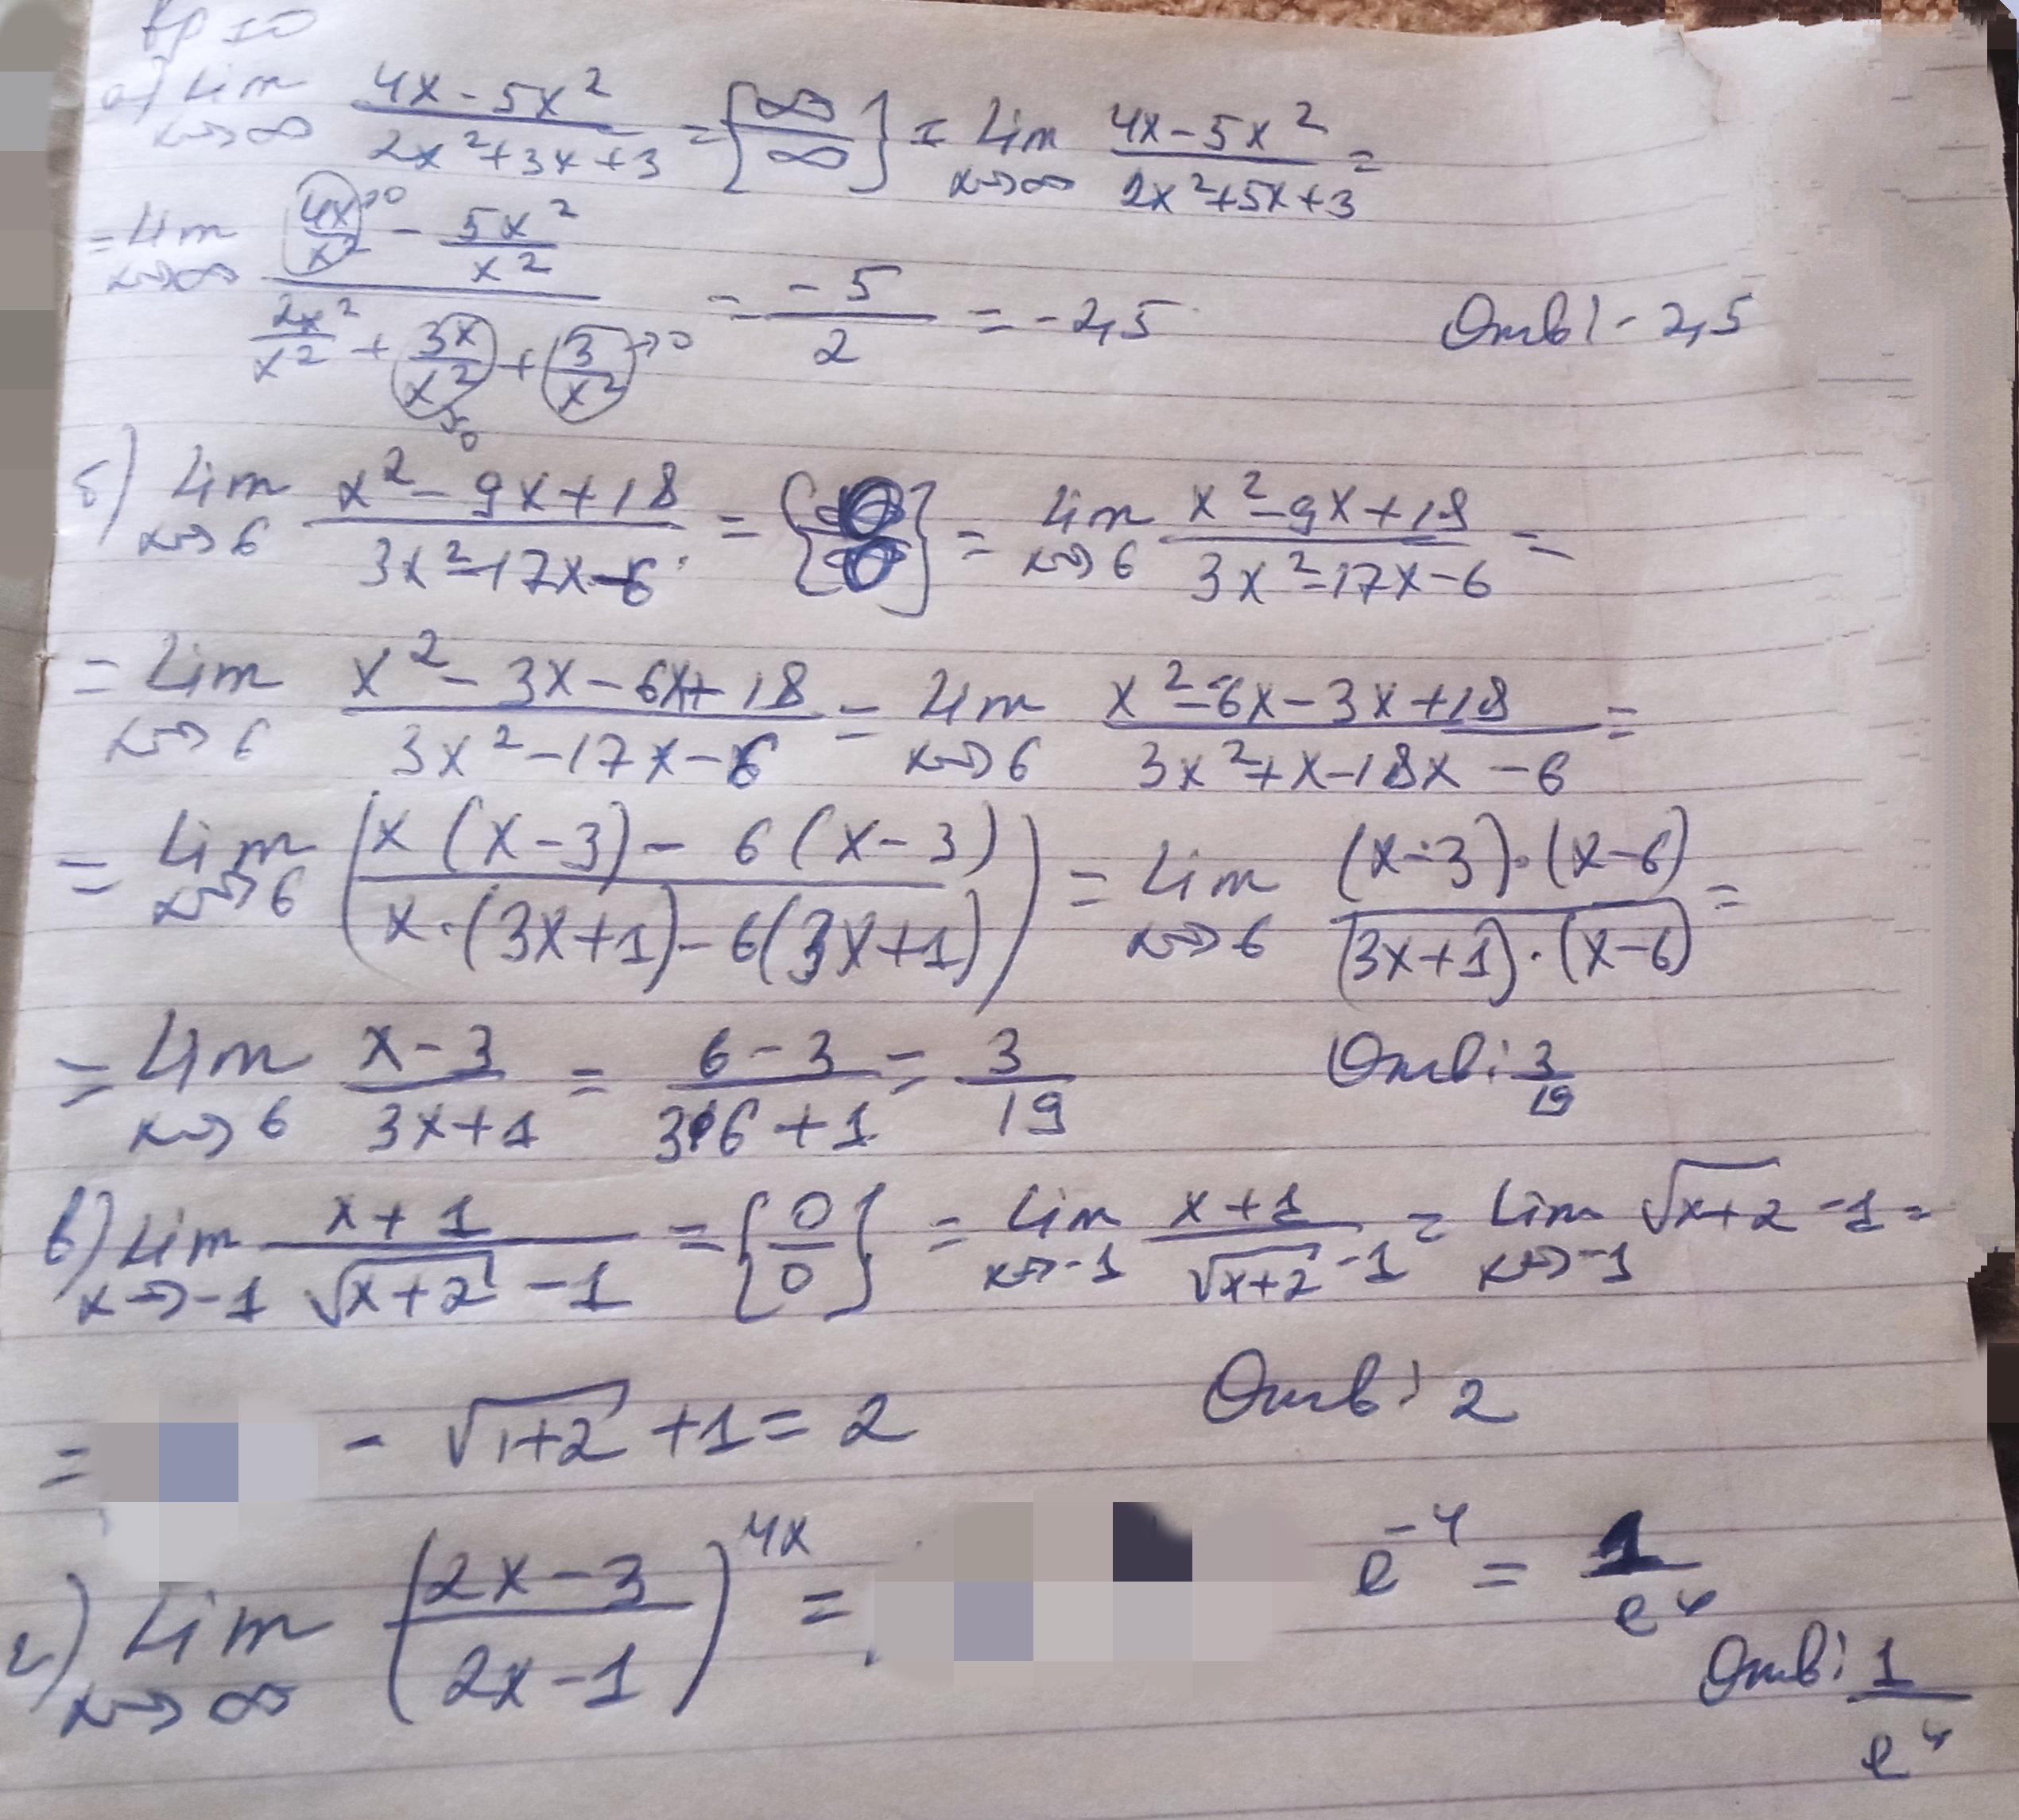 Вр 10
а) Lim x→∞ (4x - 5x²)/(2x² + 3x + 3) = {∞/∞} = Lim x→∞ (4x - 5x²)/(2x² + 5x + 3) =
= Lim x→∞ (4x/x² →0 - 5x²/x²)/(2x²/x² + 3x/x² →0 + 3/x² →0) = -5/2 = -2,5 Ответ: -2,5
б) Lim x→6 (x² - 9x + 18)/(3x² - 17x - 6) = {0/0} = Lim x→6 (x² - 9x + 18)/(3x² - 17x - 6) =
= Lim x→6 (x² - 3x - 6x + 18)/(3x² - 17x - 6) = Lim x→6 (x² - 6x - 3x + 18)/(3x² + x - 18x - 6) =
= Lim x→6 ((x(x-3) - 6(x-3))/(x·(3x+1) - 6(3x+1))) = Lim x→6 ((x-3)·(x-6))/((3x+1)·(x-6)) =
= Lim x→6 (x-3)/(3x+1) = (6-3)/(3·6+1) = 3/19 Отв: 3/19
в) Lim x→-1 (x+1)/(√(x+2) - 1) = {0/0} = Lim x→-1 (x+1)/(√(x+2) - 1) = Lim x→-1 √(x+2) - 1 =
= - √(1+2) + 1 = 2 Отв: 2
г) Lim x→∞ ((2x-3)/(2x-1))^(4x) = e⁻⁴ = 1/e⁴
Отв: 1/e⁴